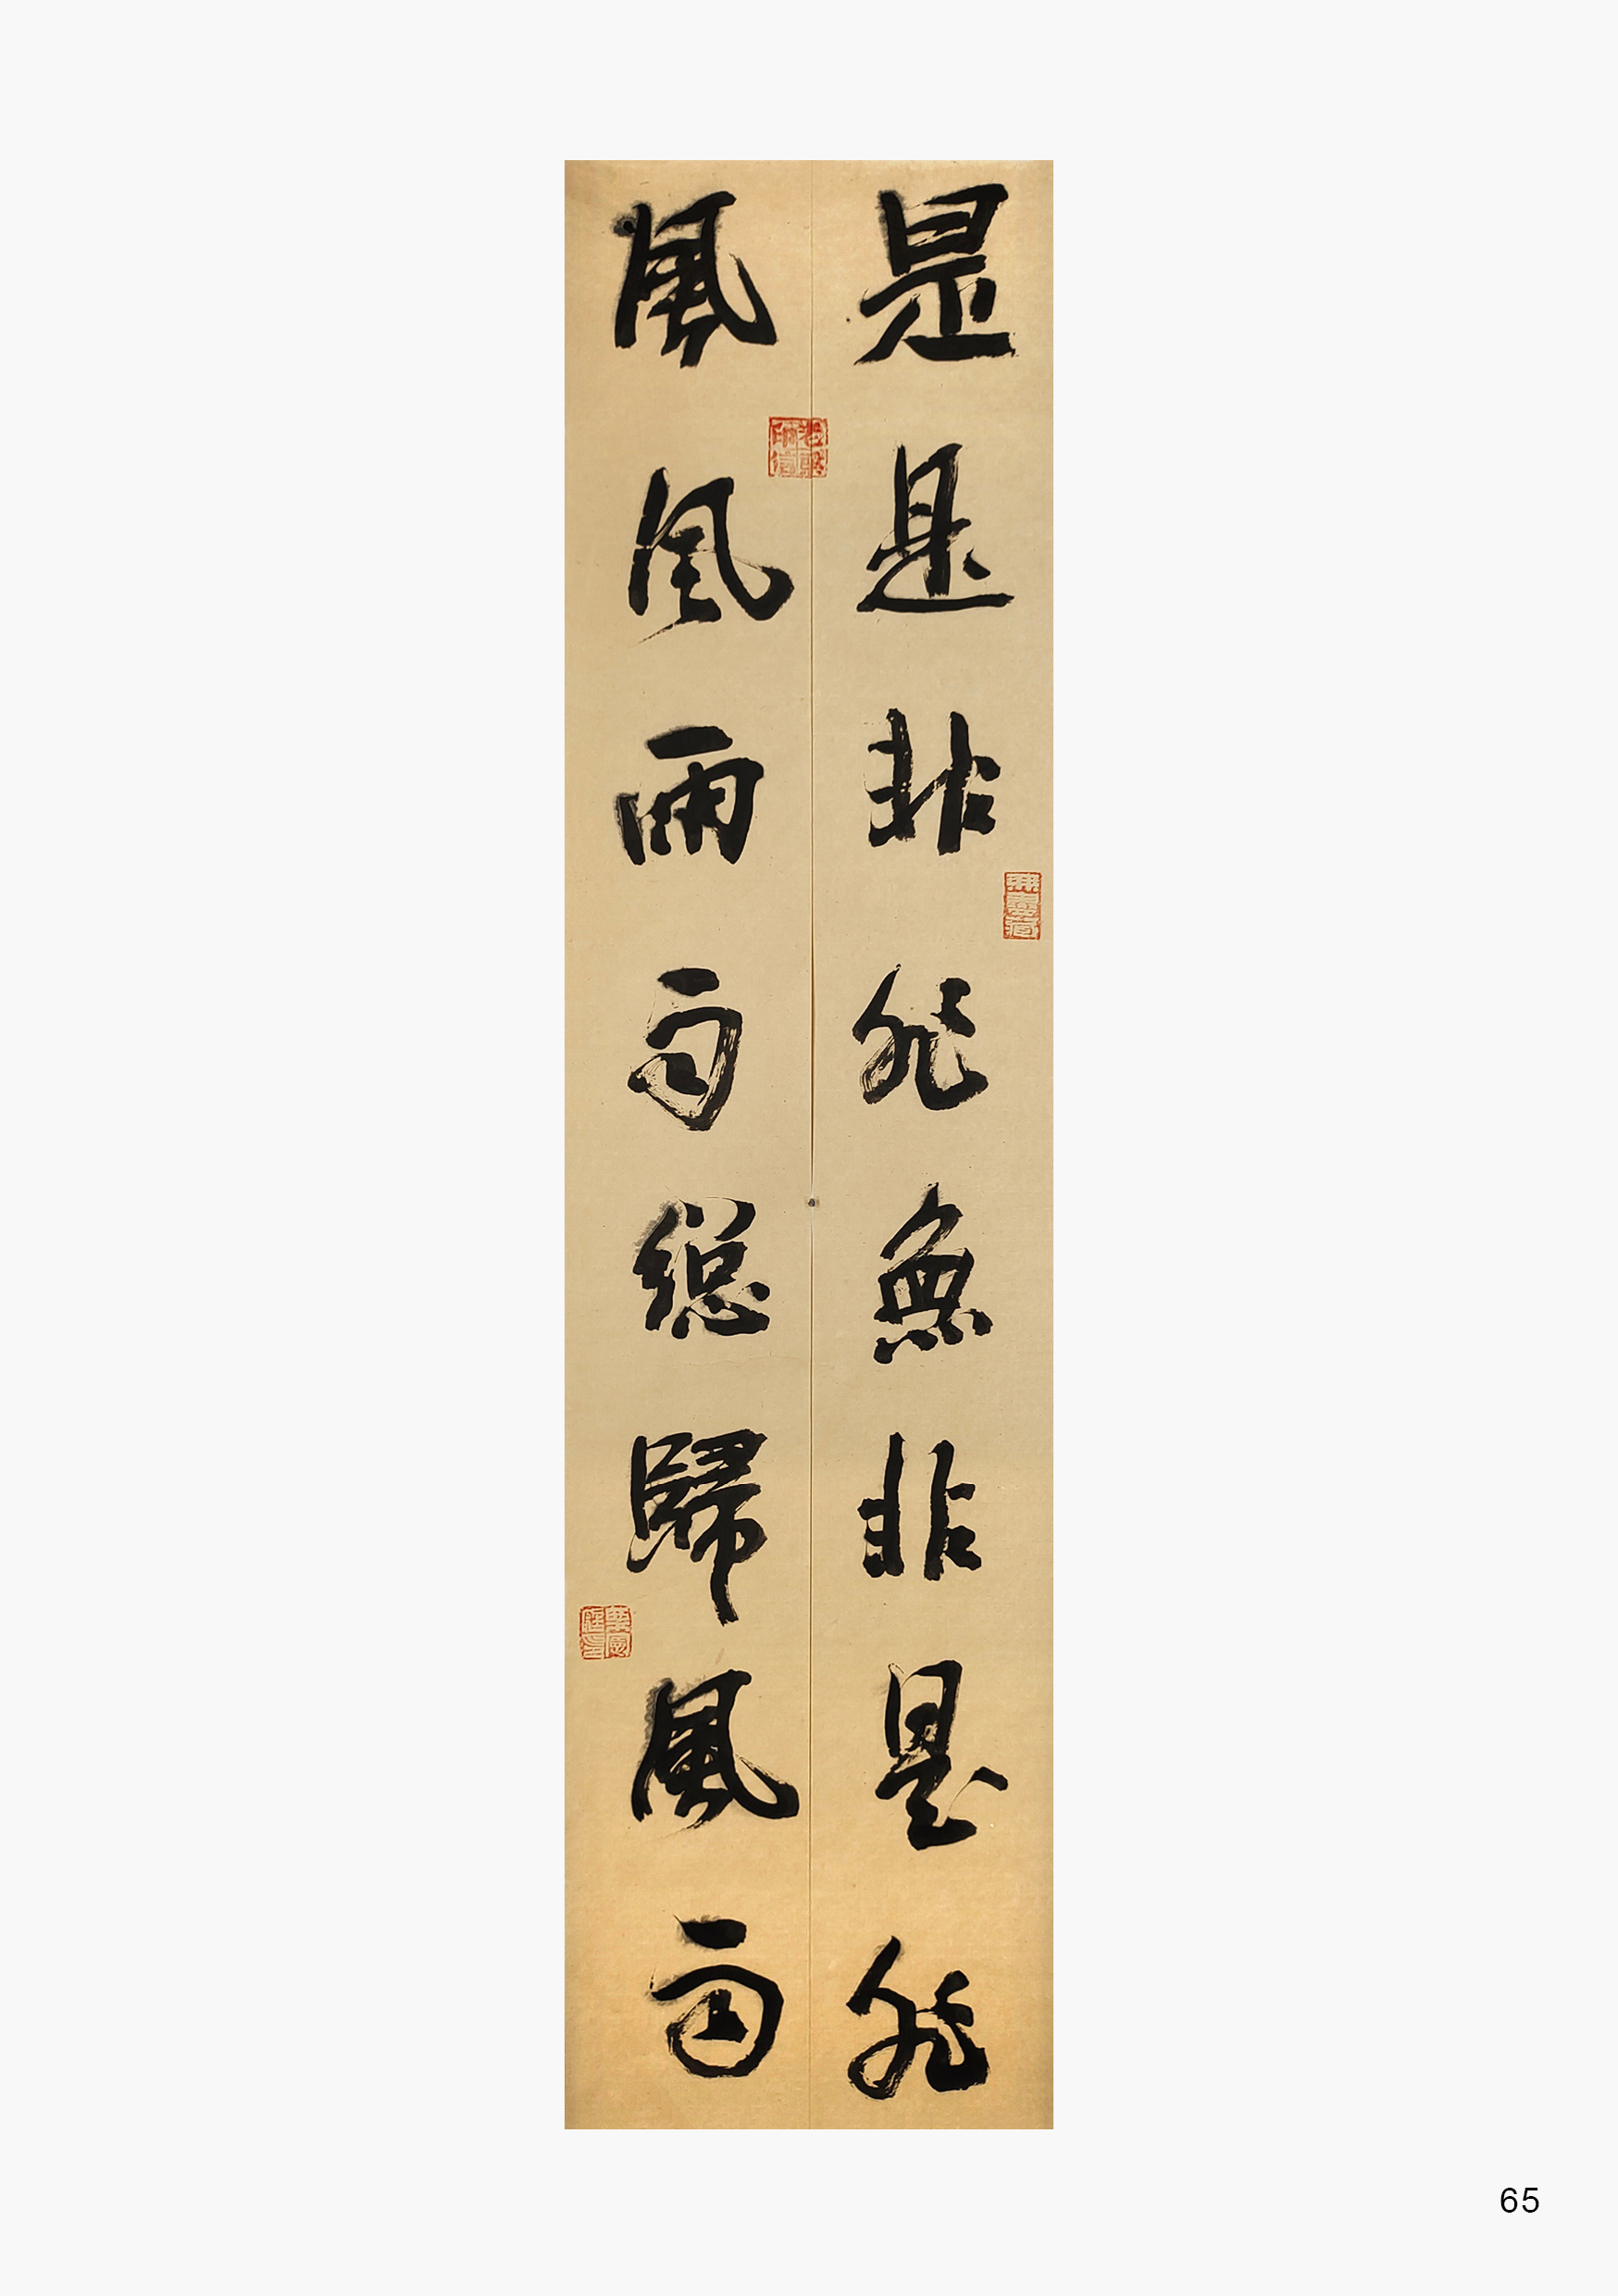 是是非非無非是非
風風雨雨總歸風雨
65